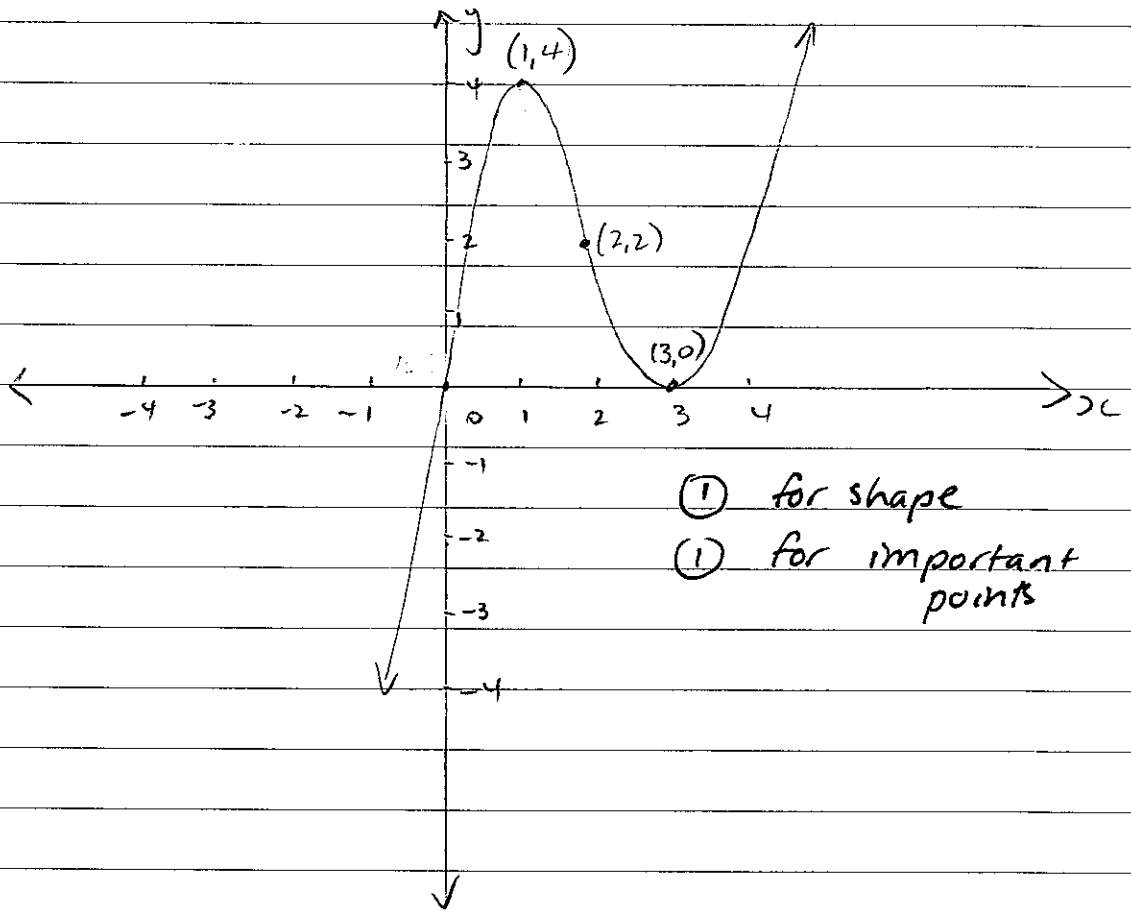 y
(1,4)
4
3
2
(2,2)
1
(3,0)
-4 -3 -2 -1 0 1 2 3 4 x
-1
① for shape
-2
① for important
points
-3
-4